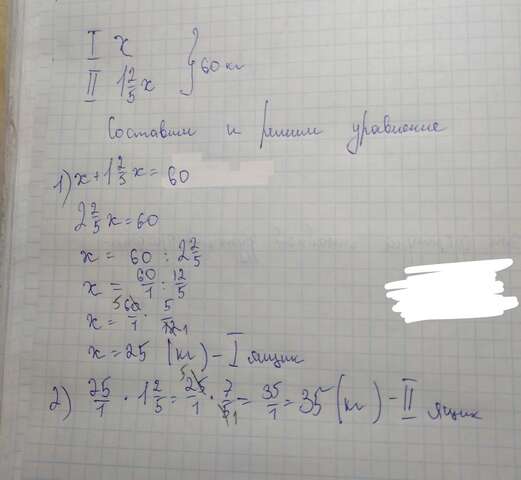 I x
II 1 2/5 x } 60 кг
Составим и решим уравнение
1) x + 1 2/5 x = 60
2 2/5 x = 60
x = 60 : 2 2/5
x = 60/1 : 12/5
x = 5 60/1 · 5/12 1
x = 25 (кг) - I ящик
2) 25/1 · 1 2/5 = 5 25/1 · 7/5 1 = 35/1 = 35 (кг) - II ящик